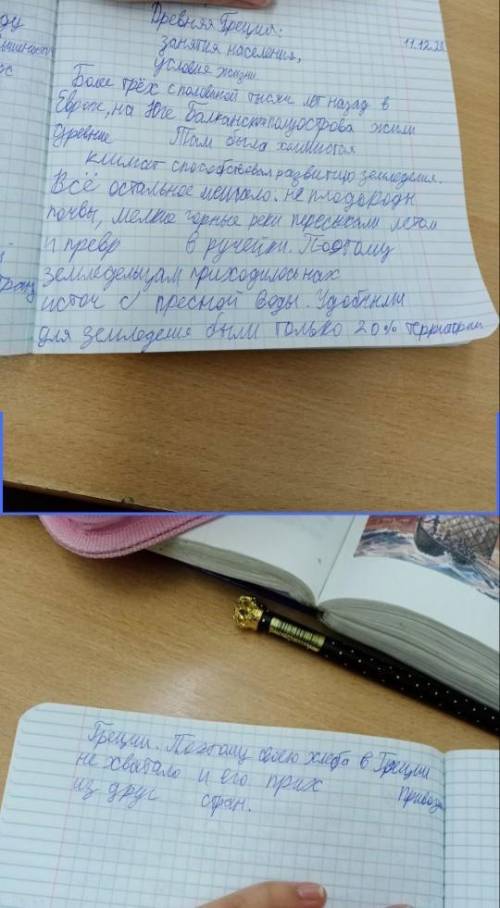 Древняя Греция:
занятия населения,
условие жизни
11.12.
Более трёх с половиной тысяч лет назад в
Европе, на Юге Балканского полуострова жили
древние Там была холмистая
климат способствовал развитию земледелия.
Всё остальное мешало. не плодородн
почвы, мелкие горные реки пересыхали летом
и превр в ручейки. Поэтому
земледельцам приходилось нах
источ с пресной воды. Удобными
для земледелия были только 20% территории
Греции. Поэтому своего хлеба в Греции
не хватало и его прих привоз
из друг стран.